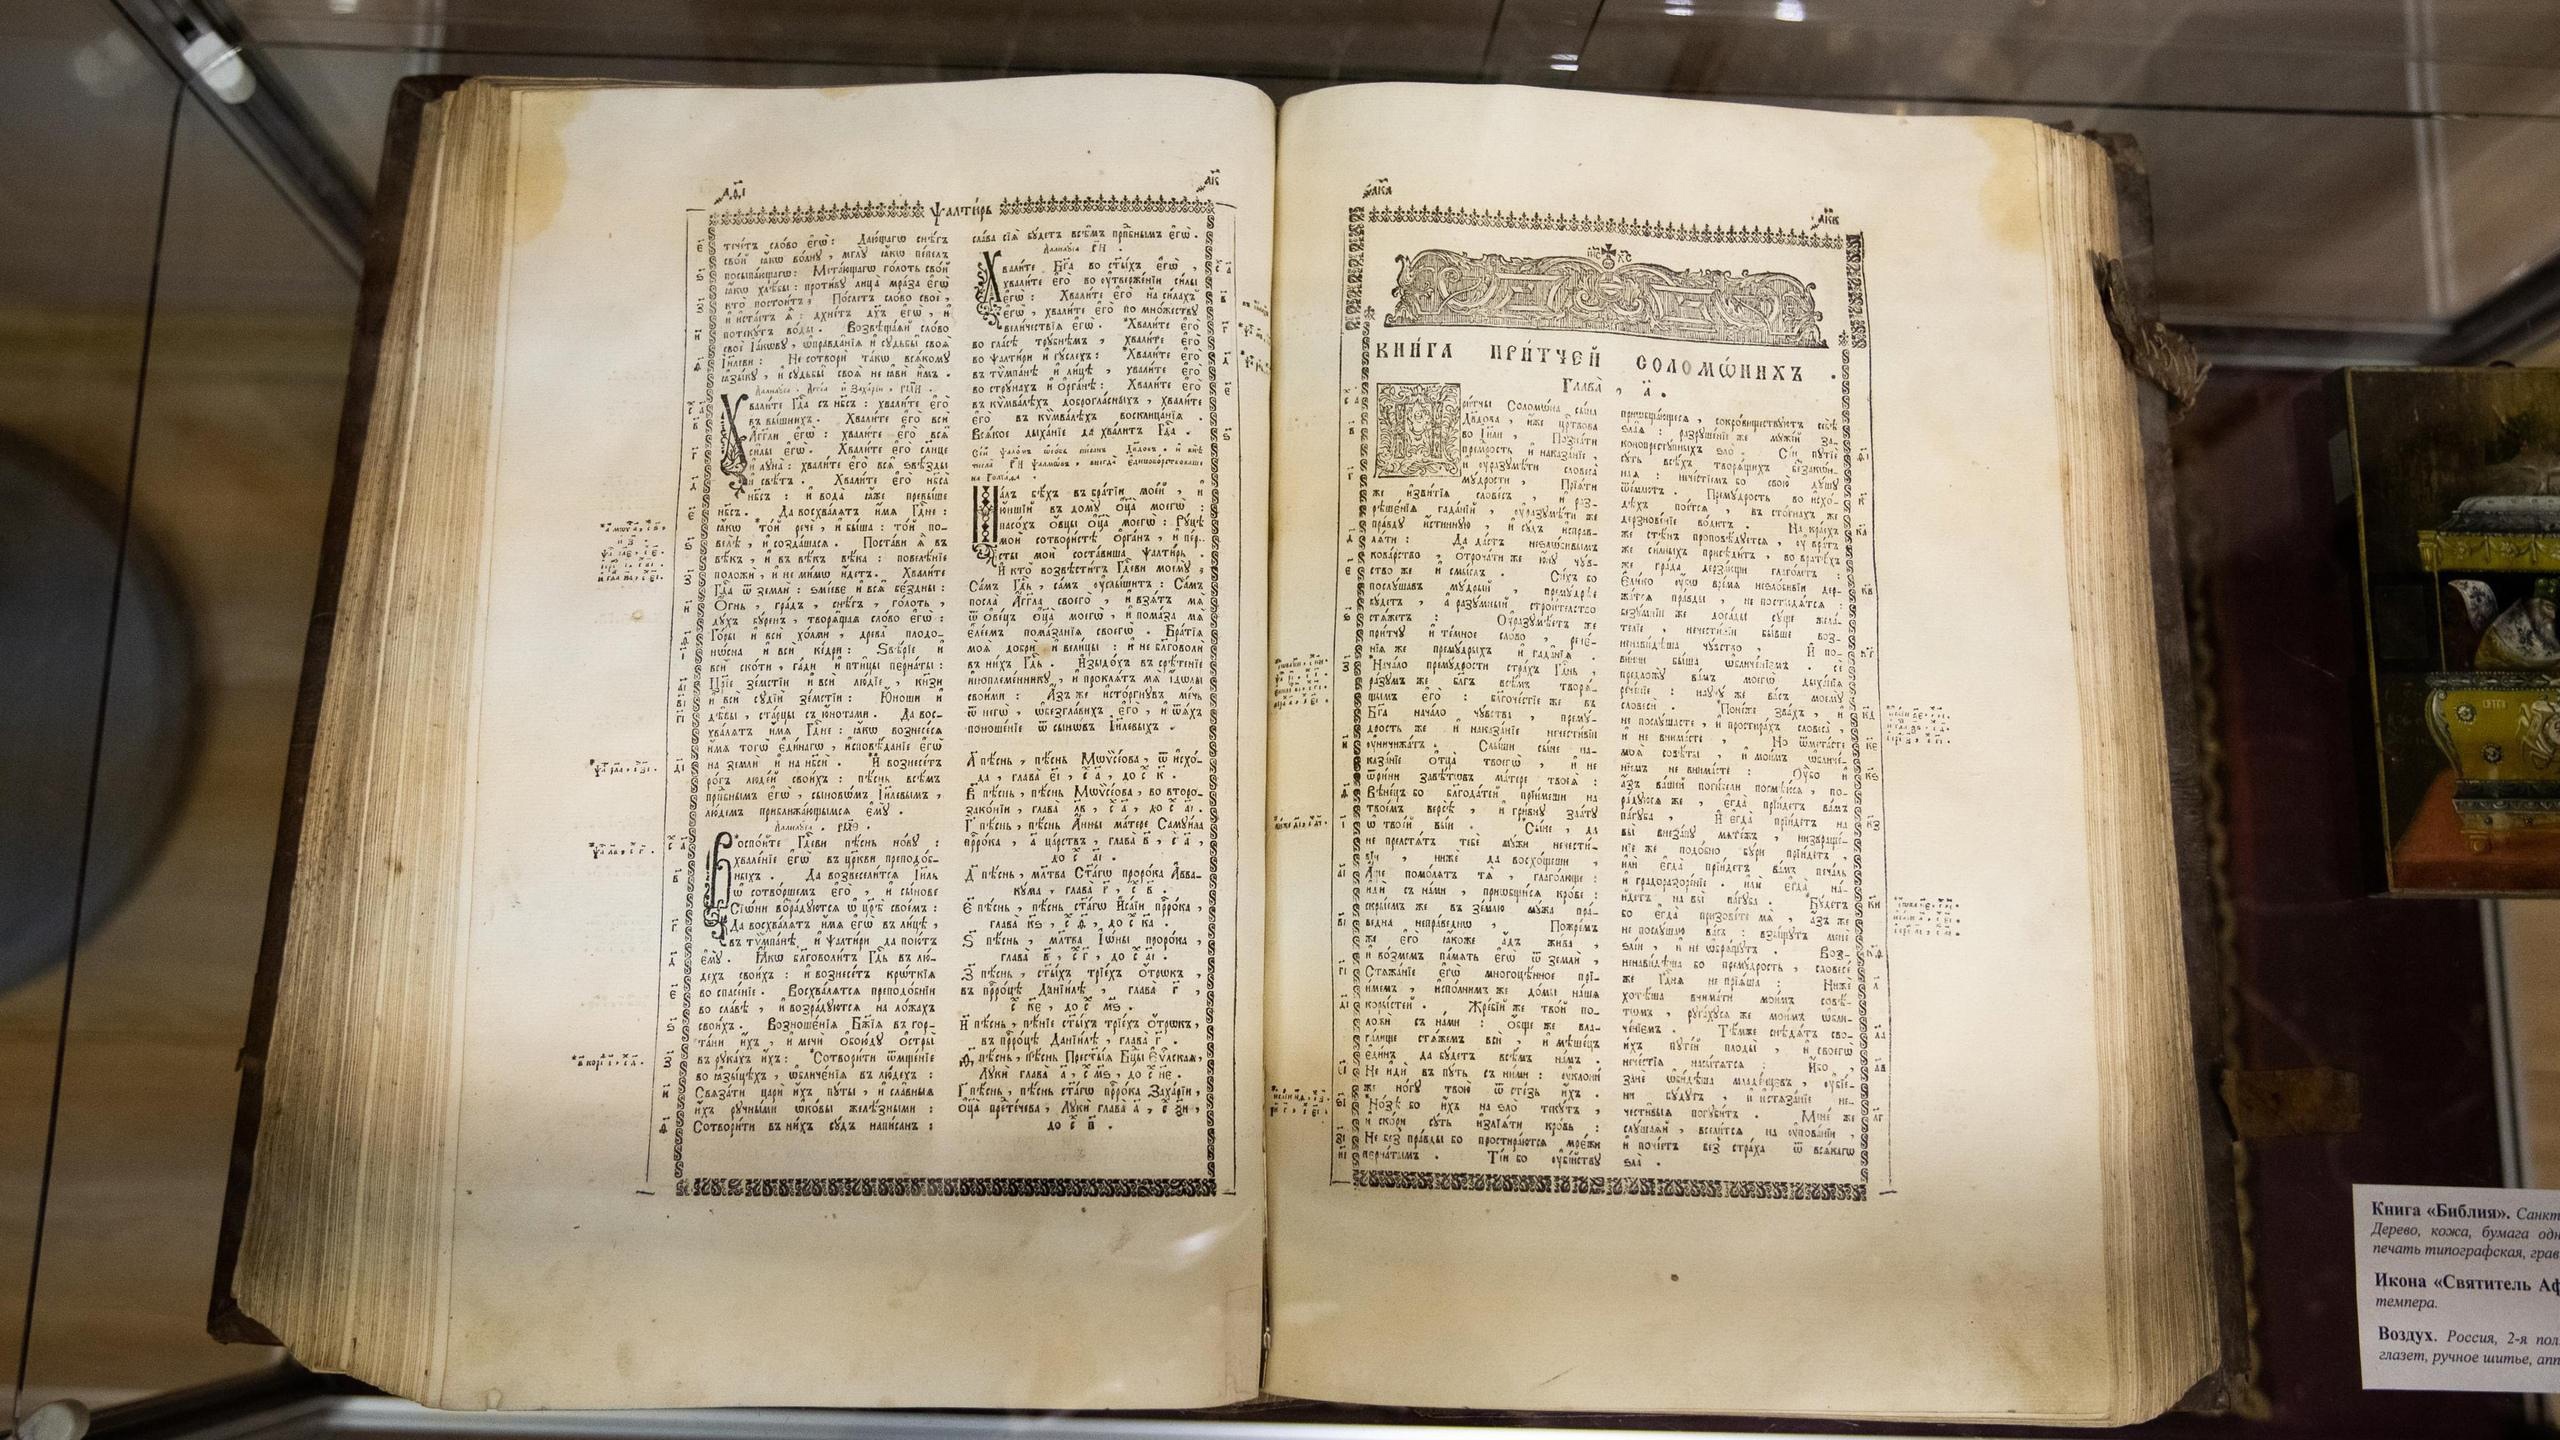 Ѱалти́рь
тече́тъ сло́во є҆гѡ̀: Даю́щагѡ снѣ́гъ
сво́й ꙗ҆́кѡ во́лну, мглꙋ̀ ꙗ҆́кѡ пе́пелъ
посыпа́ющагѡ: Мета́ющагѡ го́лоть сво́й
ꙗ҆́кѡ хлѣ́бы: проти́вꙋ лица̀ мра́за є҆гѡ̀
кто̀ постои́тъ; По́слетъ сло́во своѐ,
и҆ и҆ста́етъ ѧ҆̀: дхнетъ дх҃ъ є҆гѡ̀, и҆
потекꙋ́тъ во́ды. Возвѣща́ѧй сло́во
своѐ І҆а́кѡвꙋ, ѡ҆правда̑нїѧ и҆ сꙋдьбы̑ своѧ̑
І҆и҃леви: Не сотворѝ та́кѡ всѧ́комꙋ
ꙗ҆зы́кꙋ, и҆ сꙋдьбы̑ своѧ̑ не ꙗ҆вѝ и҆̀мъ.
Хвали́те Гдⷭ҇а съ нб҃съ: хвали́те є҆го̀
въ вы́шнихъ. Хвали́те є҆го̀ всѝ
А҆́гг҃ли є҆гѡ̀: хвали́те є҆го̀ всѧ̑
си̑лы є҆гѡ̀. Хвали́те є҆го̀ сл҃нце
и҆ лꙋна̀: хвали́те є҆го̀ всѧ̑ ѕвѣ́зды
и҆ свѣ́тъ. Хвали́те є҆го̀ нб҃са̀
нб҃съ: и҆ вода̀ ꙗ҆́же превы́ше
нб҃съ. Да восхва́лѧтъ и҆́мѧ Гдⷭ҇не:
ꙗ҆́кѡ то́й речѐ, и҆ бы́ша: то́й по-
велѣ̀, и҆ созда́шасѧ. Поста́ви ѧ҆̀ въ
вѣ́къ, и҆ въ вѣ́къ вѣ́ка: повелѣ́нїе
положѝ, и҆ не ми́мѡ и҆́детъ. Хвали́те
Гдⷭ҇а ѿ землѝ: ѕмі́еве и҆ всѧ̑ бє́здны:
Ѻ҆́гнь, гра́дъ, снѣ́гъ, го́лоть,
дꙋ́хъ бꙋ́ренъ, творѧ́щаѧ сло́во є҆гѡ̀:
Го́ры и҆ всѝ хо́лми, древа̀ плодо-
нѡ́сна и҆ всѝ ке́дри: Ѕвѣ́рїе и҆
всѝ ско́ти, га́ди и҆ пти̑цы перна̑ты:
Ца́рїе зе́мстїи и҆ всѝ лю́дїе, кнѧ̑зи
и҆ всѝ сꙋдїи̑ зе́мстїи: Ю҆́ноши и҆
дѣ̑вы, ста́рцы съ ю҆́нотами. Да вос-
хва́лѧтъ и҆́мѧ Гдⷭ҇не: ꙗ҆́кѡ вознесе́сѧ
и҆́мѧ тогѡ̀ є҆ди́нагѡ, и҆сповѣ́данїе є҆гѡ̀
на землѝ и҆ на нб҃сѝ. И҆ вознесе́тъ
ро́гъ люде́й свои́хъ: пѣ́снь всѣ̑мъ
прпⷣбнымъ є҆гѡ̀, сыновѡ́мъ І҆и҃левымъ,
лю́демъ приближа́ющымсѧ є҆мꙋ̀.
Воспо́йте Гдⷭ҇еви пѣ́снь но́вꙋ:
хвале́нїе є҆гѡ̀ въ цр҃кви преподо́б-
ныхъ. Да возвесели́тсѧ І҆и҃ль
ѡ҆ сотво́ршемъ є҆го̀, и҆ сы́нове
Сїѡ́ни возра́дꙋютсѧ ѡ҆ цр҃ѣ̀ свое́мъ:
Да восхва́лѧтъ и҆́мѧ є҆гѡ̀ въ ли́цѣ,
въ тѷмпа́нѣ, и҆ ѱалти́ри да пою́тъ
є҆мꙋ̀. Ꙗ҆́кѡ бл҃говоли́тъ Гдⷭ҇ь въ лю́-
дехъ свои́хъ: и҆ вознесе́тъ крѡ́ткїѧ
во спасе́нїе. Восхва́лѧтсѧ преподо́бнїи
во сла́вѣ, и҆ возра́дꙋютсѧ на ло́жахъ
свои́хъ. Возноше́нїѧ Бж҃їѧ въ гор-
та́ни и҆́хъ, и҆ мечи̑ ѻ҆бою́дꙋ ѻ҆стры̑
въ рꙋка́хъ и҆́хъ: Сотвори́ти ѿмще́нїе
во ꙗ҆зы́цѣхъ, ѡ҆бличє́нїѧ въ лю́дехъ:
Свѧза́ти цари̑ и҆́хъ пꙋ́ты, и҆ сла̑вныѧ
и҆́хъ рꙋчны́ми ѡ҆кѡ́вы желѣ́зными:
Сотвори́ти въ ни́хъ сꙋ́дъ напи́санъ:
сла́ва сїѧ̀ бꙋ́детъ всѣ̑мъ прпⷣбнымъ є҆гѡ̀.
Хвали́те Бг҃а во ст҃ы́хъ є҆гѡ̀,
хвали́те є҆го̀ во ᲂу҆тверже́нїи си́лы
є҆гѡ̀: Хвали́те є҆го̀ на си́лахъ
є҆гѡ̀, хвали́те є҆го̀ по мно́жествꙋ
вели́чествїѧ є҆гѡ̀. Хвали́те є҆го̀
во гла́сѣ трꙋ́бнѣмъ, хвали́те є҆го̀
во ѱалти́ри и҆ гꙋ́слехъ: Хвали́те є҆го̀
въ тѷмпа́нѣ и҆ ли́цѣ, хвали́те є҆го̀
во стрꙋ́нахъ и҆ ѻ҆рга́нѣ: Хвали́те є҆го̀
въ кѷмва́лѣхъ доброгла́сныхъ, хвали́те
є҆го̀ въ кѷмва́лѣхъ восклица́нїѧ.
Всѧ́кое дыха́нїе да хва́литъ Гдⷭ҇а.
Ма́лъ бѣ́хъ въ бра́тїи мое́й, и҆
ю҆нші́й въ домꙋ̀ ѻ҆тц҃а̀ моегѡ̀:
пасо́хъ ѻ҆́вцы ѻ҆тц҃а̀ моегѡ̀: Рꙋ́цѣ
моѝ сотвори́стѣ ѻ҆рга́нъ, и҆ пер-
сты̀ моѝ соста́виша ѱалти́рь.
И҆ кто̀ возвѣсти́тъ Гдⷭ҇еви моемꙋ̀;
Са́мъ Гдⷭ҇ь, са́мъ ᲂу҆слы́шитъ: Са́мъ
посла̀ А҆́гг҃ла своего̀, и҆ взѧ́тъ мѧ̀
ѿ ѻ҆ве́цъ ѻ҆тц҃а̀ моегѡ̀, и҆ пома́за мѧ̀
є҆ле́емъ пома́занїѧ своегѡ̀. Бра́тїѧ
моѧ̑ добрѝ и҆ вели́цы: и҆ не бл҃говолѝ
въ ни́хъ Гдⷭ҇ь. И҆зыдо́хъ въ срѣ́тенїе
и҆ноплеме́нникꙋ, и҆ проклѧ́тъ мѧ̀ і҆́дѡлы
свои́ми: А҆́зъ же и҆сто́ргнꙋвъ ме́чь
ѿ негѡ̀, ѡ҆безгла́вихъ є҆го̀, и҆ ѿѧ́хъ
поноше́нїе ѿ сынѡ́въ І҆и҃левыхъ.
А҃ пѣ́снь, пѣ́снь Мѡѷсе́ова, ѿ и҆схо́-
да, глава̀ є҃і, с҃ а҃, до с҃ к҃.
В҃ пѣ́снь, пѣ́снь Мѡѷсе́ова, во второ-
зако́нїи, глава̀ л҃в, с҃ а҃, до с҃ а҃і.
Г҃ пѣ́снь, пѣ́снь А҆́нны ма́тере Самꙋи́ла
прⷪ҇ро́ка, а҃ ца́рствъ, глава̀ в҃, с҃ а҃,
до с҃ а҃і.
Д҃ пѣ́снь, мл҃тва Ст҃а́гѡ проро́ка А҆вва-
кꙋ́ма, глава̀ г҃, с҃ в҃.
Є҃ пѣ́снь, пѣ́снь ст҃а́гѡ И҆са́їи прⷪ҇ро́ка,
глава̀ к҃ѕ, с҃ ѳ҃, до с҃ к҃а.
Ѕ҃ пѣ́снь, мл҃тва І҆ѡ́ны проро́ка,
глава̀ в҃, с҃ г҃, до с҃ а҃і.
З҃ пѣ́снь, ст҃ы́хъ трїе́хъ ѻ҆трѡ́къ,
въ прⷪ҇ро́цѣ Данїи́лѣ, глава̀ г҃,
с҃ к҃є, до с҃ м҃ѕ.
И҃ пѣ́снь, пѣ́нїе ст҃ы́хъ трїе́хъ ѻ҆трѡ́къ,
въ прⷪ҇ро́цѣ Данїи́лѣ, глава̀ г҃.
Ѳ҃ пѣ́снь, пѣ́снь Прест҃ы́ѧ Бцⷣы Є҆ѵⷢ҇льскаѧ,
Лꙋкѝ глава̀ а҃, с҃ м҃ѕ, до с҃ н҃є.
І҃ пѣ́снь, пѣ́снь ст҃а́гѡ прⷪ҇ро́ка Заха́рїи,
ѻ҆тц҃а̀ прⷣте́чева, Лꙋкѝ глава̀ а҃, с҃ ѯ҃и,
до с҃ п҃.
КНИ́ГА ПРИ́ТЧЕЙ СОЛОМѠ́НИХЪ.
Глава̀, а҃.
При́тчы Соломѡ́на сы́на
Дв҃дова, и҆́же црⷭ҇твова
во І҆и҃ли, Позна́ти
премⷣрость и҆ наказа́нїе,
и҆ ᲂу҆разꙋмѣ́ти словеса̀
мꙋ́дрости, Прїѧ́ти
же и҆зви̑тїѧ слове́съ, и҆ раз-
рѣшє́нїѧ гада́нїй, ᲂу҆разꙋмѣ́ти же
пра́вдꙋ и҆́стиннꙋю, и҆ сꙋ́дъ и҆справ-
лѧ́ти: Да да́стъ неѕлѡ́бивымъ
кова́рство, ѻ҆троча́ти же ю҆́нꙋ чꙋ́в-
ство же и҆ смы́слъ. Си́хъ бо
послꙋ́шавъ мꙋ́дрый, премꙋдрѣ́е
бꙋ́детъ, а҆ разꙋ́мный строи́тельство
стѧ́жетъ: Оу҆разꙋмѣ́етъ же
при́тчꙋ и҆ те́мное сло́во, рече́-
нїѧ же премꙋ́дрыхъ и҆ гада̑нїѧ.
Нача́ло премꙋ́дрости стра́хъ Гдⷭ҇нь,
ра́зꙋмъ же бл҃гъ всѣ̑мъ творѧ́-
щымъ є҆го̀: бл҃гоче́стїе же въ
Бг҃а нача́ло чꙋ́вства, премꙋ́-
дрость же и҆ наказа́нїе нечести́вїи
ᲂу҆ничижа́тъ. Слы́ши сы́не на-
каза́нїе ѻ҆тца̀ твоегѡ̀, и҆ не
ѿри́ни завѣ́тѡвъ ма́тере твоеѧ̀:
Вѣне́цъ бо благода́тей прїи́меши на
твое́мъ версѣ̀, и҆ гри́внꙋ зла́тꙋ
ѡ҆ твое́й вы́и. Сы́не, да
не прельстѧ́тъ тебѐ мꙋ́жи нечести́-
вїи, нижѐ да восхо́щеши,
А҆́ще помо́лѧтъ тѧ̀, глаго́люще:
и҆дѝ съ на́ми, приѡбщи́сѧ кро́ве:
скры́емъ же въ зе́млю мꙋ́жа пра́-
ведна непра́веднѡ, Пожре́мъ
же є҆го̀ ꙗ҆́коже а҆́дъ жи́ва,
и҆ во́змемъ па́мѧть є҆гѡ̀ ѿ землѝ,
Стѧжа́нїе є҆гѡ̀ многоцѣ́нное прїи́-
мемъ, и҆спо́лнимъ же до́мы на́шѧ
коры́стей. Жре́бїй же тво́й по-
ложѝ съ на́ми: ѻ҆́бще же вла-
га́лище стѧ́жемъ всѝ, и҆ мѣше́цъ
є҆ди́нъ да бꙋ́детъ всѣ̑мъ на́мъ.
Не и҆дѝ въ пꙋ́ть съ ни́ми: ᲂу҆клонѝ
же но́гꙋ твою̀ ѿ сте́зь и҆́хъ.
Но́зѣ бо и҆́хъ на ѕло̀ текꙋ́тъ,
и҆ ско́ри сꙋ́ть и҆злїѧ́ти кро́вь:
Не без̾ пра́вды бо простира́ютсѧ мрє́жи
перна̑тымъ. Ті́и бо ᲂу҆бі́йствꙋ
приѡбща́ющесѧ, сокро́вищствꙋютъ себѣ̀
ѕла̑ѧ: разрꙋше́нїе же мꙋже́й за-
конопрестꙋ́пныхъ ѕло̀. Сі́и пꙋтїѐ
сꙋ́ть всѣ́хъ творѧ́щихъ беззакѡ́н-
наѧ: нече́стїемъ бо свою̀ дꙋ́шꙋ
ѿе́млютъ. Премꙋ́дрость во и҆схо́-
дѣхъ пое́тсѧ, въ сто́гнахъ же
дерзнове́нїе во́дитъ. На кра́ехъ
же стѣ́нъ проповѣ́дꙋетсѧ, ᲂу҆ вра́тъ
же си́льныхъ присѣди́тъ, во вратѣ́хъ
же гра́да дерза́ющи глаго́летъ:
Є҆ли́ко ᲂу҆́бѡ вре́мѧ неѕло́бивїи дер-
жа́тсѧ пра́вды, не постыдѧ́тсѧ:
безꙋ́мнїи же доса́ды сꙋ́ще жела́-
телїе, нечести́вїи бы́вше воз-
ненави́дѣша чꙋ́вство, И҆ по-
ви́нни бы́ша ѡ҆бличє́нїємъ. сѐ
предложꙋ̀ ва́мъ моегѡ̀ дыха́нїѧ
рече́нїе: наꙋчꙋ́ же ва́съ моемꙋ̀
словесѝ. Поне́же зва́хъ, и҆
не послꙋ́шасте, и҆ простира́хъ словеса̀,
и҆ не внима́сте, Но ѿмета́сте
моѧ̑ совѣ́ты, и҆ мои̑мъ ѡ҆бличе́-
нїємъ не внима́сте: Оу҆́бо и҆
а҆́зъ ва́шей поги́бели посмѣю́сѧ, по-
ра́дꙋюсѧ же, є҆гда̀ прїи́детъ ва́мъ
па́гꙋба, И҆ є҆гда̀ прїи́детъ на
вы̀ внеза́пꙋ мѧте́жъ, низвраще́-
нїе же подо́бно бꙋ́ри прїи́детъ,
и҆лѝ є҆гда̀ прїи́детъ ва́мъ печа́ль
и҆ градоразоре́нїе. и҆лѝ є҆гда̀ на-
и҆́детъ на вы̀ па́гꙋба. Бꙋ́детъ
бо є҆гда̀ призове́те мѧ̀, а҆́зъ же
не послꙋ́шаю ва́съ: взы́щꙋтъ менѐ
ѕлі́и, и҆ не ѡ҆брѧ́щꙋтъ. Воз-
ненави́дѣша бо премꙋ́дрость, словесѐ
же Гдⷭ҇нѧ не прїѧ́ша: Нижѐ
хотѣ́ша внима́ти мои̑мъ совѣ́-
тѡмъ, рꙋга́хꙋсѧ же мои̑мъ ѡ҆бли-
че́нїємъ. Тѣ́мже снѣдѧ́тъ сво-
и́хъ пꙋті́й плоды̀, и҆ своегѡ̀
нече́стїѧ насы́тѧтсѧ: И҆́бо,
занѐ ѡ҆би́дѣша младе́нцєвъ, ᲂу҆бїе́-
ни бꙋ́дꙋтъ, и҆ и҆стѧза́нїе не-
чести̑выѧ погꙋби́тъ. Мене́ же
слꙋ́шаѧй, всели́тсѧ на ᲂу҆пова́нїи,
и҆ почі́етъ без̾ стра́ха ѿ всѧ́кагѡ
ѕла̀.
Книга «Библия». Санкт
Дерево, кожа, бумага
печать типографская, грав
Икона «Святитель Аф
темпера.
Воздух. Россия, 2-я пол.
глазет, ручное шитье, апп